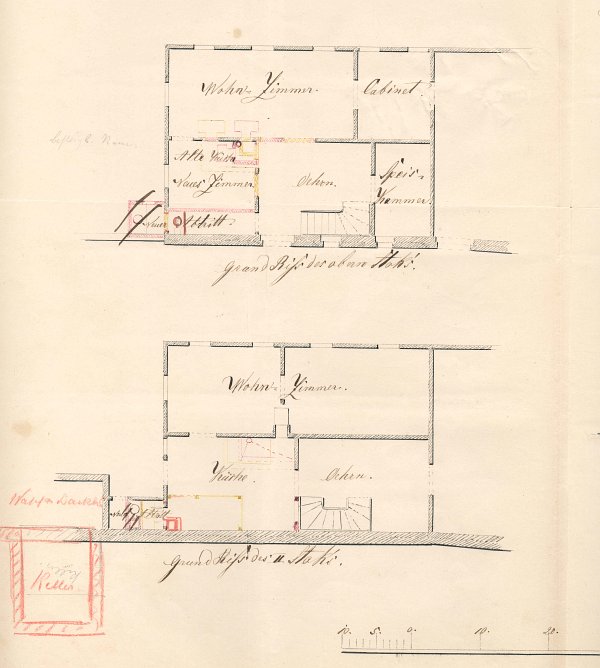 Wohn-Zimmer.
Cabinet.
Alte Küche
Neues Zimmer
Oehrn.
Speis-
Kammer
Abtritt.
Grund Riß des obern Stoks.
Wohn-Zimmer.
Küche.
Oehrn.
Keller
Grund Riß des II Stoks.
10. 5. 0. 10. 20.